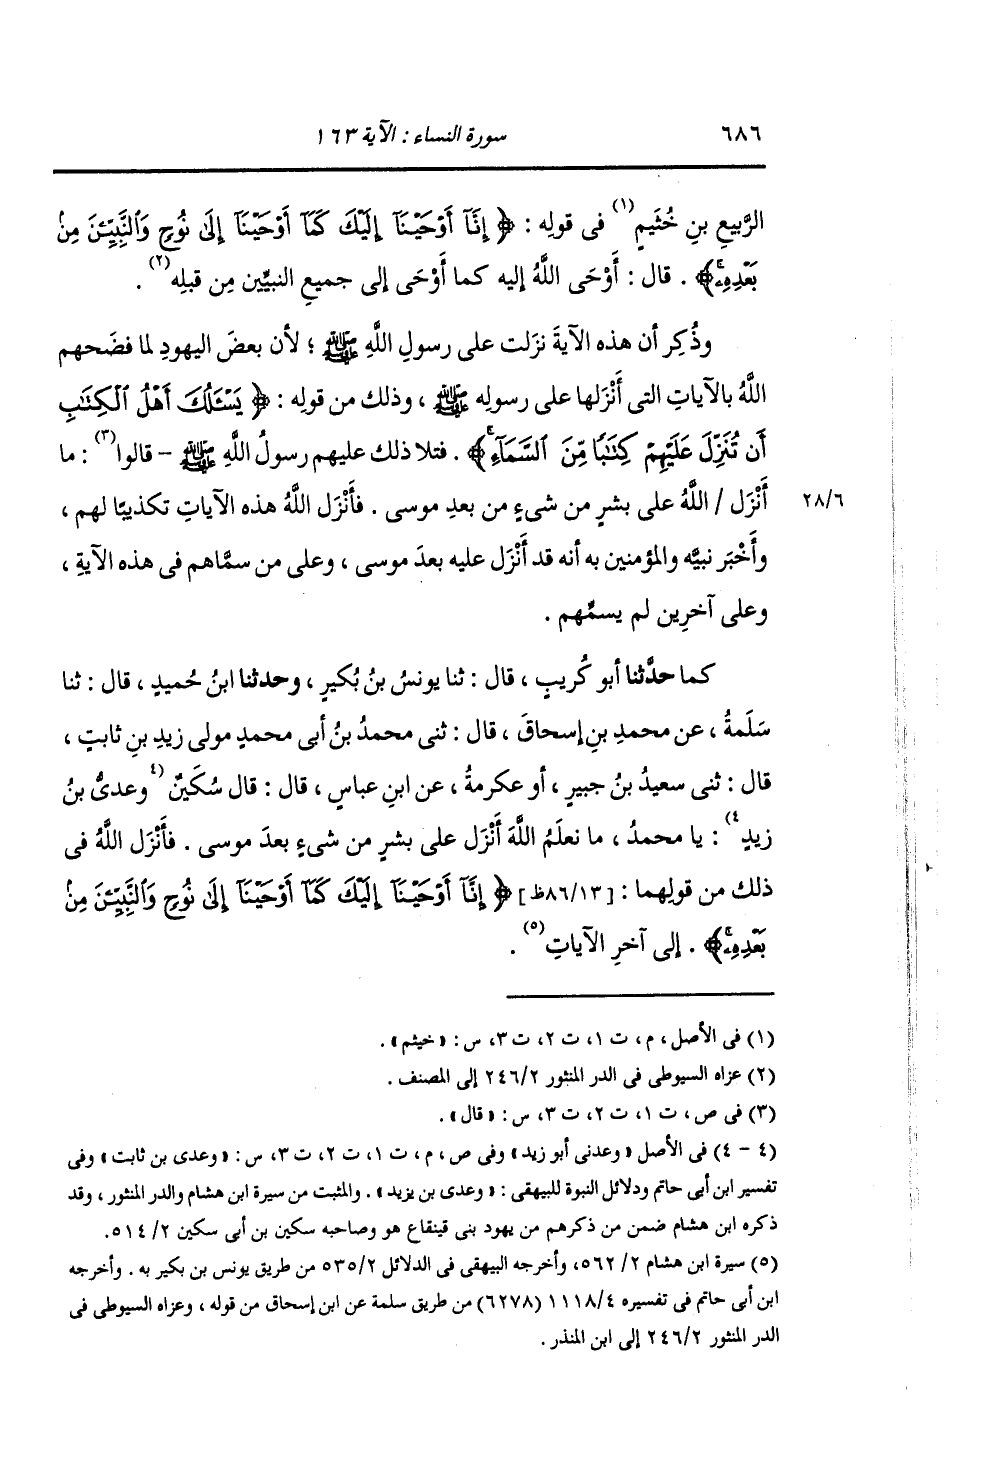 ٦٨٦ سورة النساء : الآية ١٦٣
الرَّبيعِ بنِ خُثَيمٍ(١) فى قولِه : ﴿ إِنَّآ أَوْحَيْنَآ إِلَيْكَ كَمَآ أَوْحَيْنَآ إِلَىٰ نُوحٍ وَٱلنَّبِيِّـۧنَ مِنۢ
بَعْدِهِۦۚ﴾ . قال : أَوْحَى اللَّهُ إليه كما أَوْحَى إلى جميعِ النبيِّين مِن قبلِه(٢) .
وذُكِر أن هذه الآيةَ نزَلت على رسولِ اللَّهِ ﷺ ؛ لأن بعضَ اليهودِ لما فضَحهم
اللَّهُ بالآياتِ التى أَنْزَلها على رسولِه ﷺ ، وذلك من قولِه : ﴿ يَسْـَٔلُكَ أَهْلُ ٱلْكِتَـٰبِ
أَن تُنَزِّلَ عَلَيْهِمْ كِتَـٰبًا مِّنَ ٱلسَّمَآءِۚ﴾ . فتلا ذلك عليهم رسولُ اللَّهِ ﷺ - قالوا(٣) : ما
أَنْزَل / اللَّهُ على بشرٍ من شىءٍ من بعدِ موسى . فأَنْزَل اللَّهُ هذه الآياتِ تكذيبًا لهم ، ٢٨/٦
وأَخْبَر نبيَّه والمؤمنين به أنه قد أَنْزَل عليه بعدَ موسى ، وعلى من سمَّاهم فى هذه الآيةِ ،
وعلى آخرِين لم يسمِّهم .
كما حدَّثنا أبو كُريبٍ ، قال : ثنا يونسُ بنُ بُكيرٍ ، وحدثنا ابنُ حُميدٍ ، قال : ثنا
سَلَمةُ ، عن محمدِ بنِ إسحاقَ ، قال : ثنى محمدُ بنُ أبى محمدٍ مولى زيدِ بنِ ثابتٍ ،
قال : ثنى سعيدُ بنُ جبيرٍ ، أو عكرمةُ ، عن ابنِ عباسٍ ، قال : قال سُكَينٌ (٤وعدىُّ بنُ
زيدٍ٤) : يا محمدُ ، ما نعلَمُ اللَّهَ أَنْزَل على بشرٍ من شىءٍ بعدَ موسى . فأَنْزَل اللَّهُ فى
ذلك من قولِهما : [٨٦/١٣ظ] ﴿ إِنَّآ أَوْحَيْنَآ إِلَيْكَ كَمَآ أَوْحَيْنَآ إِلَىٰ نُوحٍ وَٱلنَّبِيِّـۧنَ مِنۢ
بَعْدِهِۦۚ﴾ . إلى آخرِ الآياتِ(٥) .
(١) فى الأصل ، م ، ت ١، ت ٢، ت ٣، س : « خيثم » .
(٢) عزاه السيوطى فى الدر المنثور ٢٤٦/٢ إلى المصنف .
(٣) فى ص ، ت ١، ت ٢، ت ٣، س : « قال » .
(٤ - ٤) فى الأصل « وعدنى أبو زيد » وفى ص ، م ، ت ١، ت ٢، ت ٣، س : « وعدى بن ثابت » وفى
تفسير ابن أبى حاتم ودلائل النبوة للبيهقى : « وعدى بن يزيد » . والمثبت من سيرة ابن هشام والدر المنثور ، وقد
ذكره ابن هشام ضمن من ذكرهم من يهود بنى قينقاع هو وصاحبه سكين بن أبى سكين ٢/ ٥١٤.
(٥) سيرة ابن هشام ٢/ ٥٦٢، وأخرجه البيهقى فى الدلائل ٥٣٥/٢ من طريق يونس بن بكير به . وأخرجه
ابن أبى حاتم فى تفسيره ١١١٨/٤ (٦٢٧٨) من طريق سلمة عن ابن إسحاق من قوله ، وعزاه السيوطى فى
الدر المنثور ٢٤٦/٢ إلى ابن المنذر .